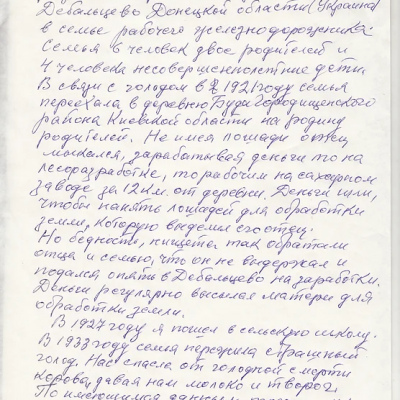 Дебальцево Донецкой области (Украина)
в семье рабочего железнодорожника.
Семья 6 человек двое родителей и
4 человека несовершеннолетние дети.
В связи с голодом в 1921 году семья
переехала в деревню Буда Городищенского
района Киевской области на родину
родителей. Не имея лошади отец
мыкался, зарабатывая деньги то на
лесоразработке, то рабочим на сахарном
заводе за 12 км. от деревни. Деньги шли,
чтобы нанять лошадей для обработки
земли, которую выделил его отец.
Но бедность, нищета так обратали
отца и семью, что он не выдержал и
подался опять в Дебальцево на заработки.
Деньги регулярно высылал матери для
обработки земли.
В 1927 году я пошел в сельскую школу.
В 1933 году семья пережила страшный
голод. Нас спасла от голодной смерти
корова, давая нам молоко и творог.
По имеющимся данным